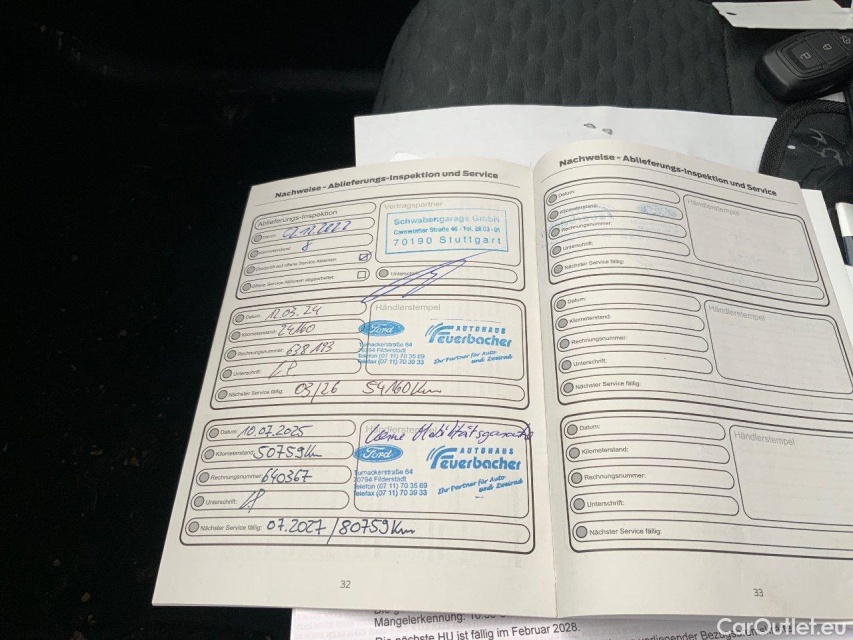 Nachweise - Ablieferungs-Inspektion und Service
Ablieferungs-Inspektion
Datum:
8
Geprüft auf offene Service Aktionen:
Offene Service Aktionen abgearbeitet:
Vertragspartner
Schwabengarage GmbH
Cannstatter Straße 46 - Tel. 28 03 - 01
70190 Stuttgart
Unterschrift
Datum: 12.03.24
Kilometerstand: 24160
Rechnungsnummer: 638193
Unterschrift:
Nächster Service fällig: 03/26 54160 Km
Händlerstempel
Ford
AUTOHAUS
Feuerbacher
Tumackerstraße 64
70794 Filderstadt
Telefon (07 11) 70 35 69
Telefax (07 11) 70 39 33
Ihr Partner für Auto-
und Zweirad
Datum: 10.07.2025
Kilometerstand: 50759 Km
Rechnungsnummer: 640367
Unterschrift:
Nächster Service fällig: 07.2027/80759 Km
Händlerstempel
keine Mobilitätsgarantie
Ford
AUTOHAUS
Feuerbacher
Tumackerstraße 64
70794 Filderstadt
Telefon (07 11) 70 35 69
Telefax (07 11) 70 39 33
Ihr Partner für Auto-
und Zweirad
32
Nachweise - Ablieferungs-Inspektion und Service
Datum:
Kilometerstand:
Rechnungsnummer:
Unterschrift:
Nächster Service fällig:
Händlerstempel
Datum:
Kilometerstand:
Rechnungsnummer:
Unterschrift:
Nächster Service fällig:
Händlerstempel
Datum:
Kilometerstand:
Rechnungsnummer:
Unterschrift:
Nächster Service fällig:
Händlerstempel
33
Mängelerkennung:
Die nächste HU ist fällig im Februar 2028.
CarOutlet.eu